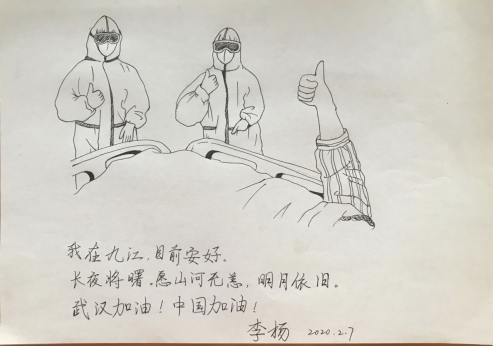 我在九江，目前安好。
长夜将曙。愿山河无恙，明月依旧。
武汉加油！中国加油！
李杨 2020.2.7